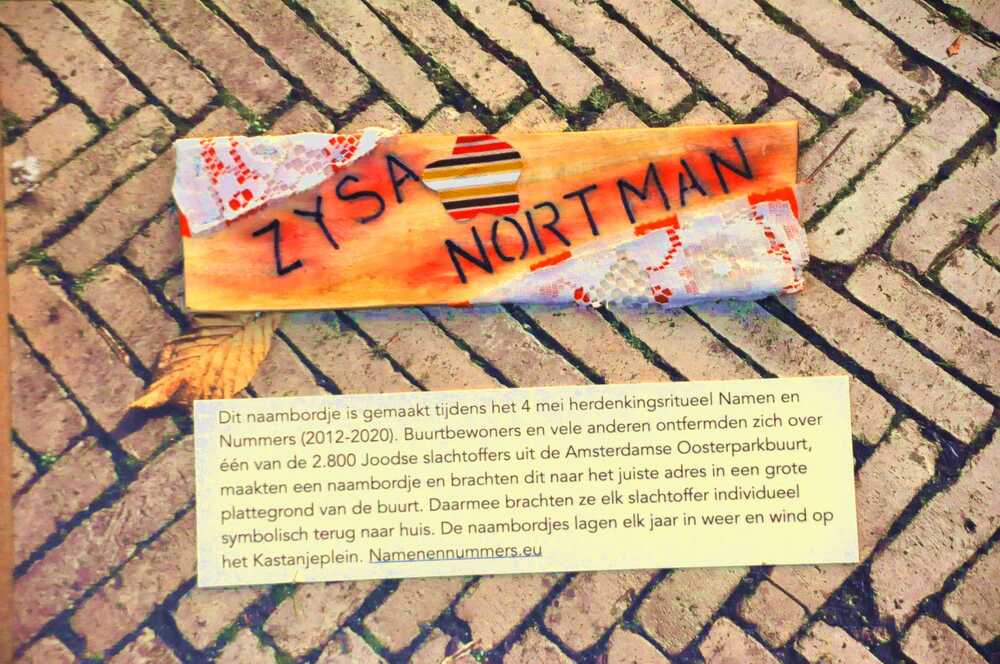 ZYSA
NORTMAN
Dit naambordje is gemaakt tijdens het 4 mei herdenkingsritueel Namen en
Nummers (2012-2020). Buurtbewoners en vele anderen ontfermden zich over
één van de 2.800 Joodse slachtoffers uit de Amsterdamse Oosterparkbuurt,
maakten een naambordje en brachten dit naar het juiste adres in een grote
plattegrond van de buurt. Daarmee brachten ze elk slachtoffer individueel
symbolisch terug naar huis. De naambordjes lagen elk jaar in weer en wind op
het Kastanjeplein. Namenennummers.eu